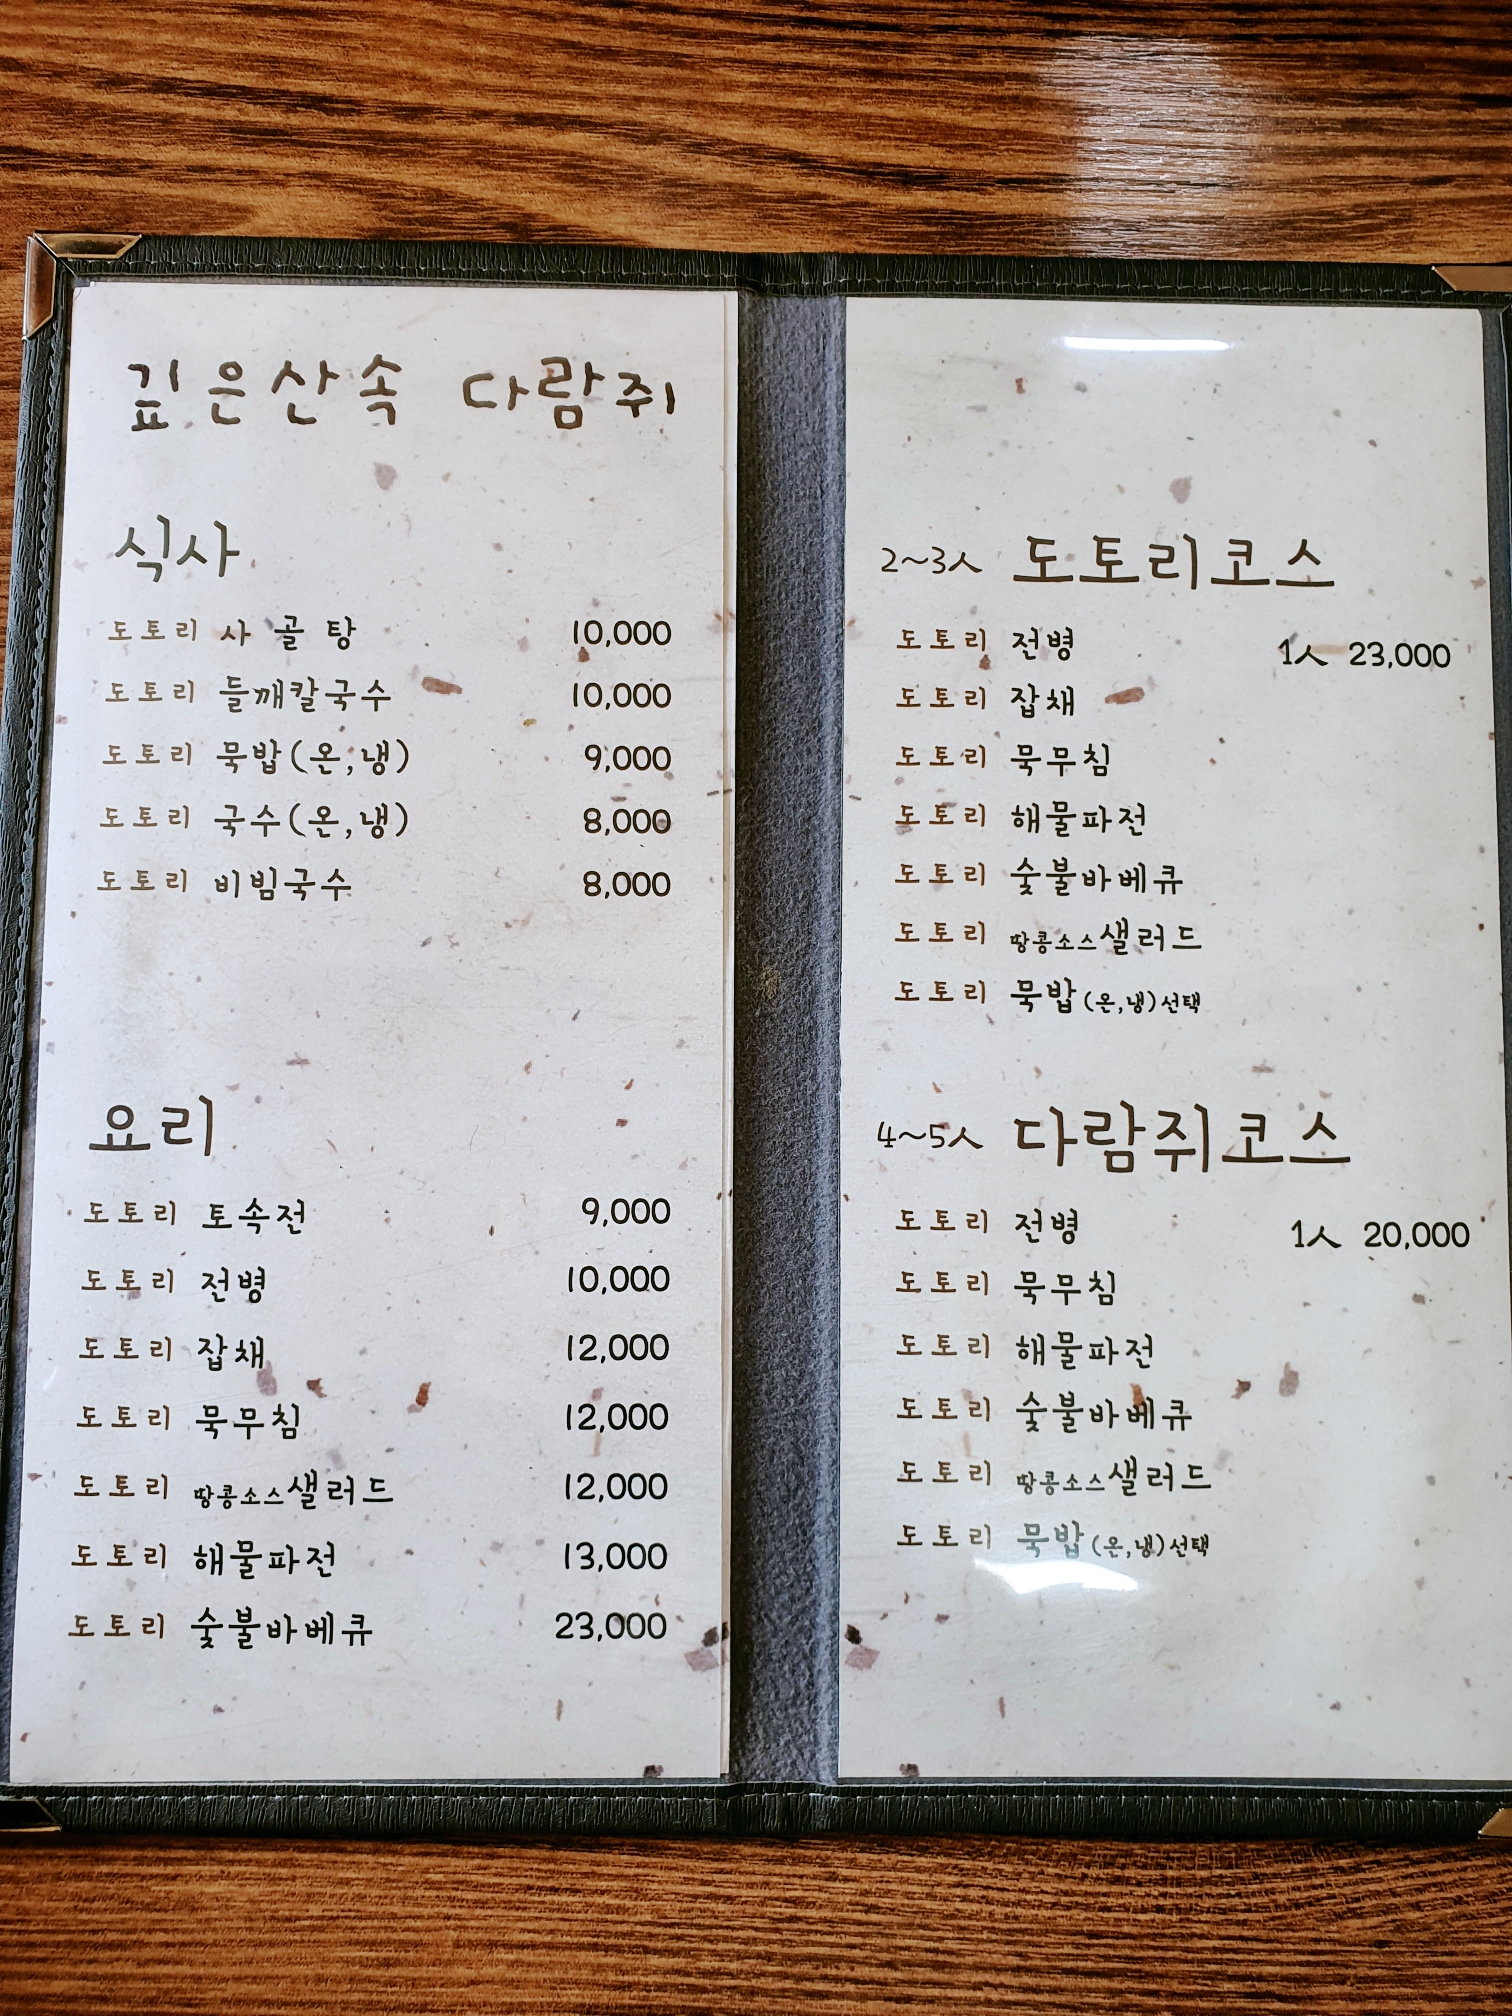 깊은산속 다람쥐
식사
도토리 사골탕 10,000
도토리 들깨칼국수 10,000
도토리 묵밥(온,냉) 9,000
도토리 국수(온,냉) 8,000
도토리 비빔국수 8,000
요리
도토리 토속전 9,000
도토리 전병 10,000
도토리 잡채 12,000
도토리 묵무침 12,000
도토리 땅콩소스샐러드 12,000
도토리 해물파전 13,000
도토리 숯불바베큐 23,000
2~3人 도토리코스
도토리 전병 1人 23,000
도토리 잡채
도토리 묵무침
도토리 해물파전
도토리 숯불바베큐
도토리 땅콩소스샐러드
도토리 묵밥(온,냉)선택
4~5人 다람쥐코스
도토리 전병 1人 20,000
도토리 묵무침
도토리 해물파전
도토리 숯불바베큐
도토리 땅콩소스샐러드
도토리 묵밥(온,냉)선택